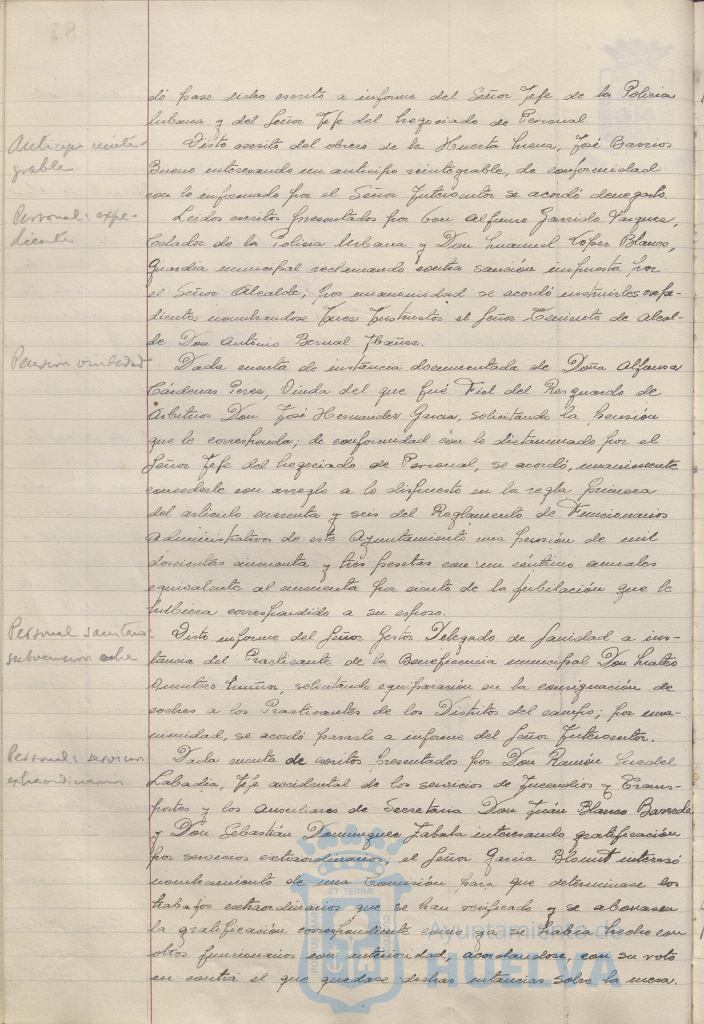 dó pase dicho escrito a informe del Señor Jefe de la Policia
Urbana y del Señor Jefe del Negociado de Personal
Anticipo reinte-
grable
Visto escrito del obrero de la Huerta Mena, José Barrios
Bueno interesando un anticipo reintegrable, de conformidad
con lo informado por el Señor Interventor se acordó denegarlo.
Personal: expe-
dientes
Leidos escritos presentados por Don Alfonso Garrido Vazquez,
Celador de la Policia Urbana y Don Manuel López Blanco,
Guardia municipal reclamando contra sanción impuesta por
el Señor Alcalde; por unanimidad se acordó instruirles expe-
dientes nombrandose Juez Instructor el Señor Teniente de Alcal-
de Don Antonio Bernal Ibañez.
Pension viudedad
Dada cuenta de instancia documentada de Doña Alfonsa
Cárdenas Perez, Viuda del que fué Fiel del Resguardo de
Arbitrios Don José Hernandez Garcia, solicitando la pensión
que le corresponda; de conformidad con lo dictaminado por el
Señor Jefe del Negociado de Personal, se acordó, unanimemente
concederle con arreglo a lo dispuesto en la regla primera
del artículo cuarenta y seis del Reglamento de Funcionarios
administrativos de este Ayuntamiento una pensión de mil
doscientas cincuenta y tres pesetas con un céntimo anuales
equivalente al cincuenta por ciento de la jubilación que le
hubiera correspondido a su esposo.
Personal sanitario:
subvencion coche
Visto informe del Señor Gestor Delegado de Sanidad a ins-
tancia del Practicante de la Beneficencia municipal Don Mateo
Quintero Muñoz, solicitando equiparación en la consignación de
coches a los Practicantes de los Distritos del campo; por una-
nimidad, se acordó pasarlo a informe del Señor Interventor.
Personal: servicios
extraordinarios
Dada cuenta de escritos presentados por Don Ramón
Labadia, Jefe accidental de los servicios de Incendios y Trans-
portes y los auxiliares de Secretaria Don Juán Blanco Barreda
y Don Sebastián Dominguez Zabala interesando gratificación
por servicios extraordinarios; el Señor Garcia interesó
nombramiento de una Comisión para que determinase los
trabajos extraordinarios que se han verificado y se abonasen
la gratificación correspondiente como ya se habia hecho con
otros funcionarios con anterioridad, acordandose, con su voto
en contra el que quedase dichas instancias sobre la mesa.
Ayuntamiento de
HUELVA